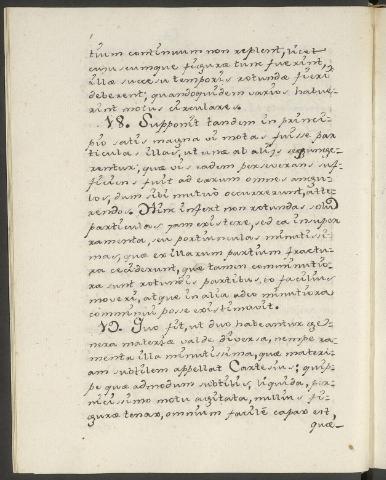 tium continuum non replent, licet
cujuscumque figuræ tunc fuerint,
illæ sucesu temporis rotundæ fieri
deberent, quandoquidem varios habue-
rint motus circulares.
18. Supponit tandem in princi-
pio satis magna vi motas fuisse par
ticulas illas, ut una ab alijs sejunge-
rentur, quæ vis eadem perseverans suf-
ficiens fuit ad earum omnes angu-
los, dum sibi mutuò occurrerunt, atte-
rendos. Hinc infert non rotundas solũ
particulas jam existere, sed ea insuper
ramenta, seu portiunculas minutissi-
mas, quæ ex illarum partium fractu-
ra ceciderunt, quæ tamen comminutio-
ra sunt rotundis partibus, eo facilius
moveri, atque in alia adeo minutiora
comminui posse existimavit.
19. Quo fit, ut duo habeantur ge-
nera materiæ valde diversa, nempe ra-
menta illa minutissima, quæ materi-
am subtilem appellat Cartesius; quip-
pe quæ admodum subtilis, liquida, per-
nicissimo motu agitata, nullius fi-
guræ tenax, omnium facilè capax est,
quæ-